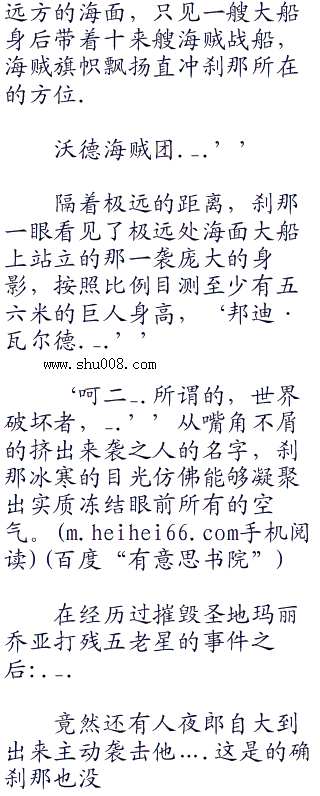 远方的海面，只见一艘大船
身后带着十来艘海贼战船，
海贼旗帜飘扬直冲刹那所在
的方位.
沃德海贼团._.’’
隔着极远的距离，刹那
一眼看见了极远处海面大船
上站立的那一袭庞大的身
影，按照比例目测至少有五
六米的巨人身高，‘邦迪·
瓦尔德._.’’
www.shu008.com
‘呵二_.所谓的，世界
破坏者，_.’’从嘴角不屑
的挤出来袭之人的名字，刹
那冰寒的目光仿佛能够凝聚
出实质冻结眼前所有的空
气。(m.heihei66.com手机阅
读)(百度“有意思书院”)
在经历过摧毁圣地玛丽
乔亚打残五老星的事件之
后:._.
竟然还有人夜郎自大到
出来主动袭击他….这是的确
刹那也没